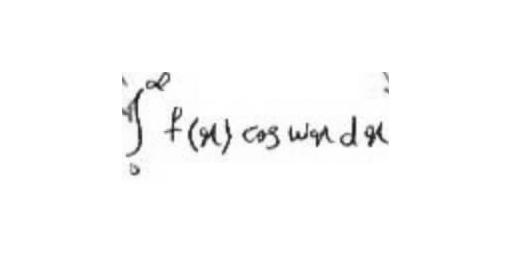 ∫₀^∞ f(x) cos wx dx